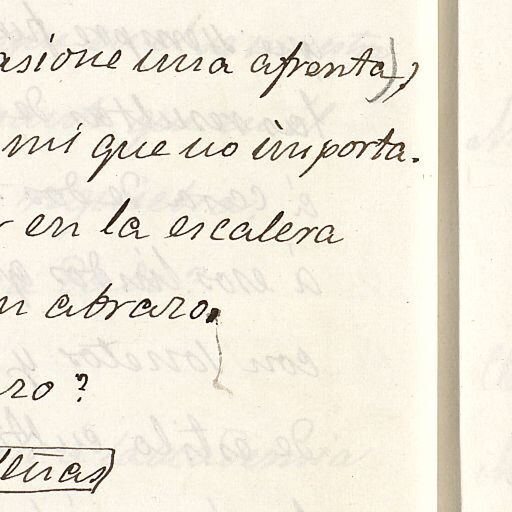 asione una afrenta),
mi que no importa.
r en la escalera
n abrazo.
ro?
eñas